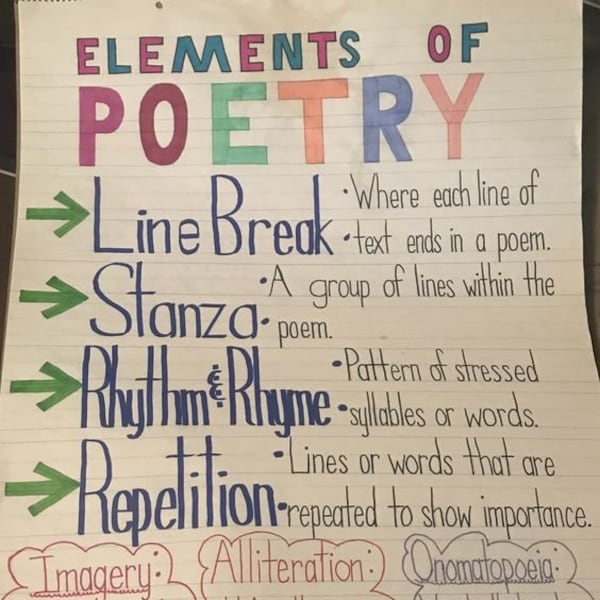 ELEMENTS OF
POETRY
Line Break • Where each line of
• text ends in a poem.
Stanza • A group of lines within the
• poem.
Rhythm & Rhyme • Pattern of stressed
• syllables or words.
Repetition • Lines or words that are
• repeated to show importance.
Imagery: Alliteration: Onomatopoeia: